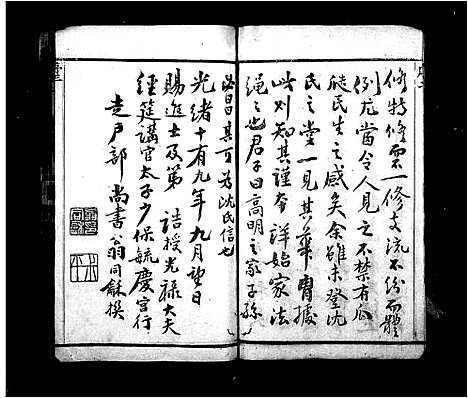 修特修而不一修支流不份而體
例尤當令人見之不禁有瓜
瓞民生之感矣余雖未登沈
氏之堂一見其華胄據
此則知其謹本詳始家法
繩之也君子曰高明之家子孫
必昌其可为沈氏信也
光緒十有九年九月望日
賜進士及第 誥授光祿大夫
經筵講官太子少保毓慶宮行
走戶部尚書翁同龢撰